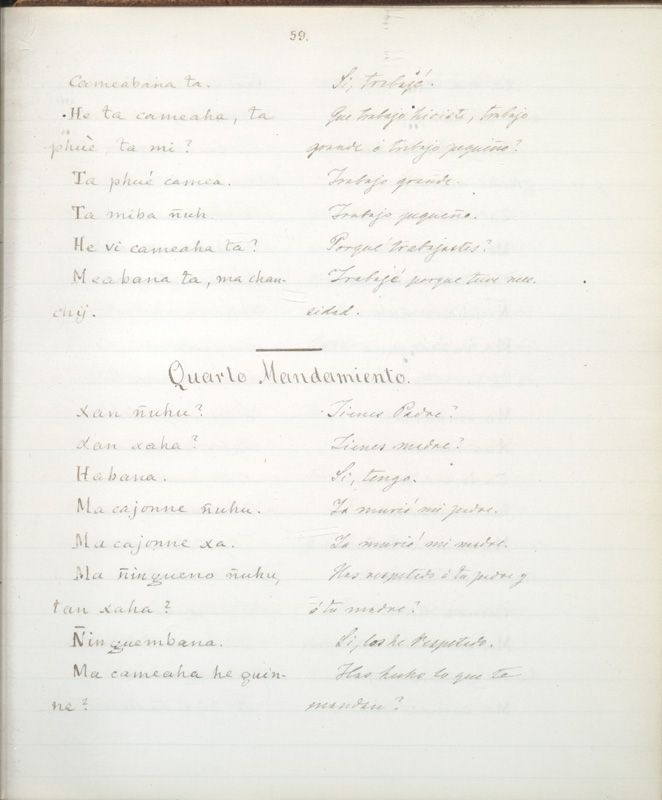 59.
Cameabana ta. Si, trabajé.
He ta cameaha, ta Que trabajo hiciste, trabajo
phuè ta mi? grande ó trabajo pequeño?
Ta phué camea. Trabajo grande.
Ta miba ñuh. Trabajo pequeño.
He vi cameaha ta? Porqué trabajastes?
Meabana ta, ma chan- Trabajé porque tuve nece-
chij. sidad.
Quarto Mandamiento.
Xan ñuhu? Tienes Padre?
Xan xaha? Tienes madre?
Habana. Si, tengo.
Ma cajonne ñuhu. Ya murió mi padre.
Ma cajonne xa. Ya murió mi madre.
Ma ñingueno ñuhu, Has respetado á tu padre y
tan xaha? á tu madre?
Ñinguembana. Si, los he respetado.
Ma cameaha he quin- Has hecho lo que te
ne? mandan?